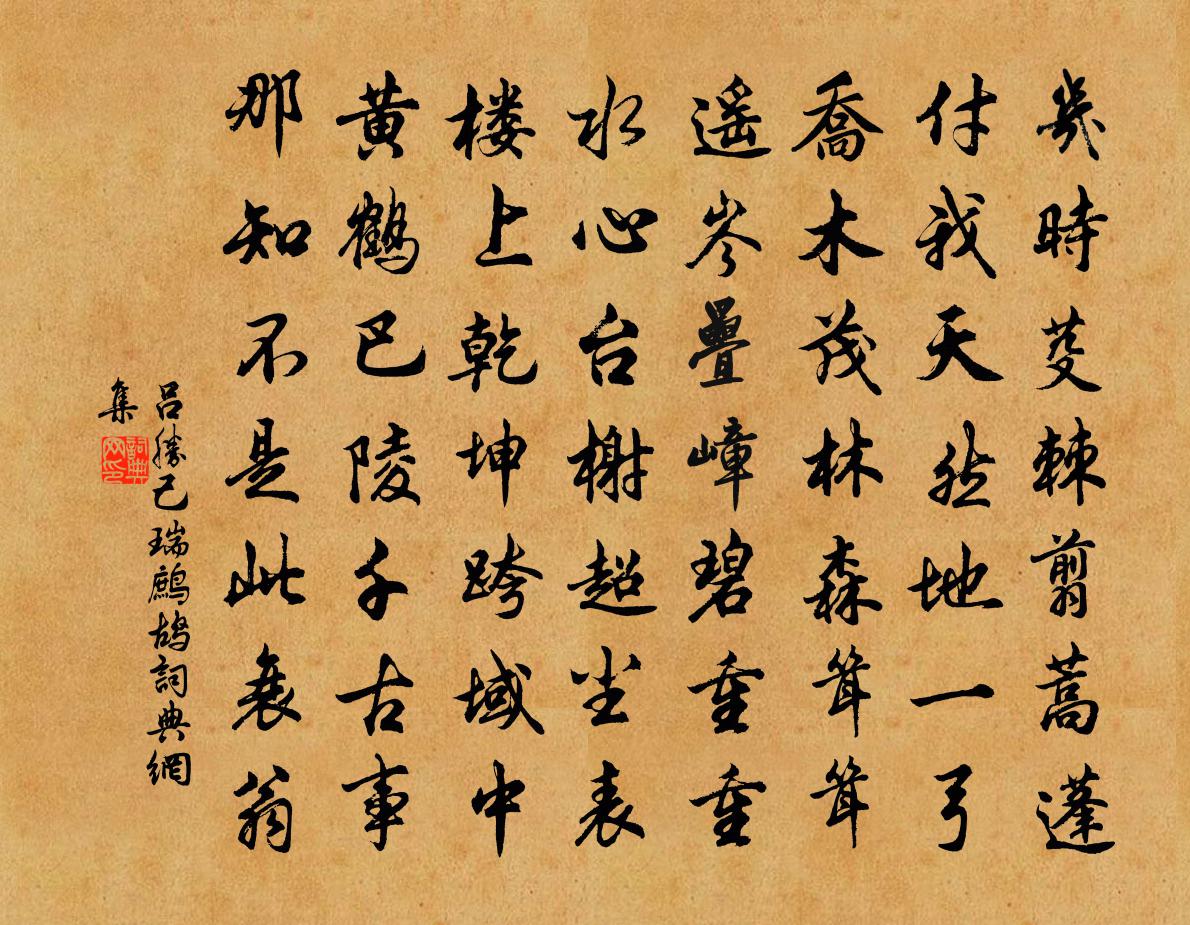 幾時芟棘剪蒿蓬
付我天然地一弓
喬木茂林森耸耸
遥岑疊嶂碧重重
水心台榭超尘表
楼上乾坤跨域中
黄鹤已陵千古事
那知不是此衰翁
吕勝己瑞鷓鸪詞典網
集